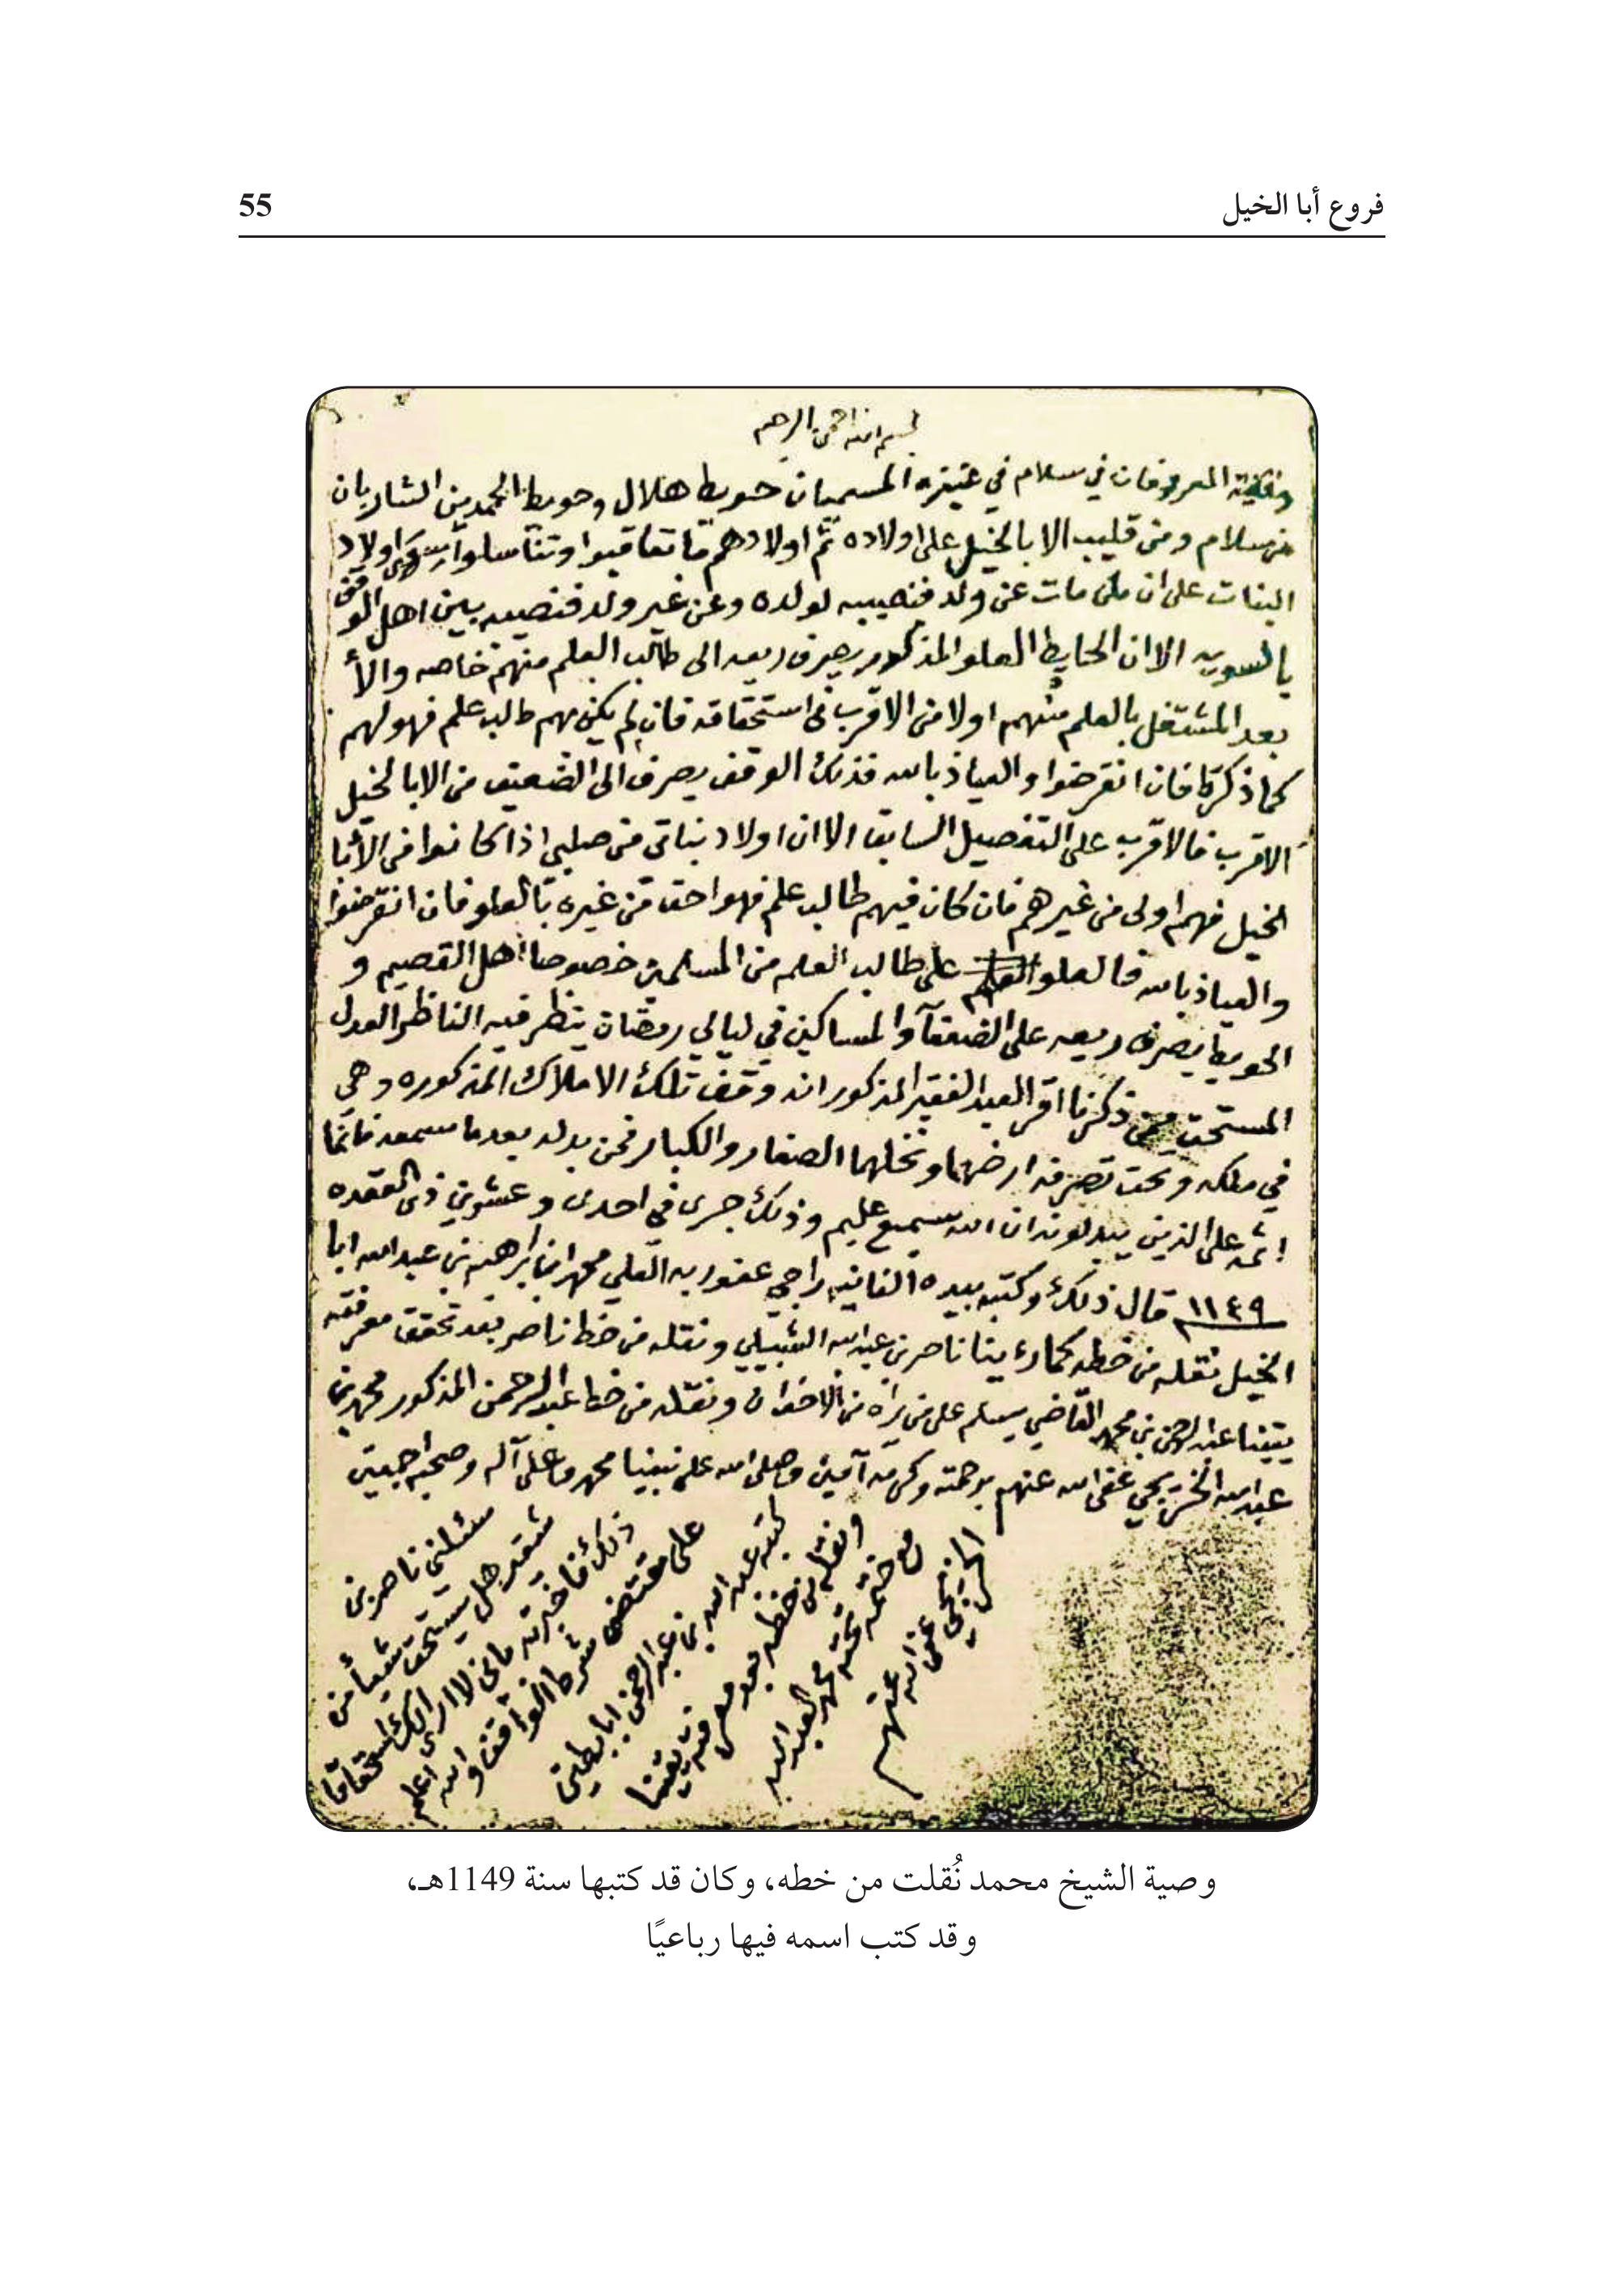 فروع أبا الخيل
55
بسم الله الرحمن الرحيم
المعروفان في سلام في عنيزه المسميان حويط هلال وحويط الحميدين الشاربان
من سلام ومن قليب الابا الخيل على اولاده ثم اولادهم ما تعاقبوا وتناسلوا اولاد
البنات على ان من مات عن ولد فنصيبه لولده وعن غير ولد فنصيبه بين اهل الوقف
بالسويه الا ان الحايط العلو المذكور يصرف ريعه الى طالب العلم منهم خاصه والا
بعد المشتغل بالعلم منهم اولا من الاقرب في استحقاقه فان لم يكن مهم طالب علم فهو لهم
كما ذكرنا فان انقرضوا والعياذ بالله فذلك الوقف يصرف الى الضعيف من الابا الخيل
الاقرب فالاقرب على التفصيل السابق الا ان اولاد بناتي من صلبي اذا كانوا من الأبا
الخيل فهم اولى من غيرهم فان كان فيهم طالب علم فهو احق من غيره بالعلو فان انقرضوا
والعياذ بالله فالعلو على طالب العلم من المسلمين خصوصا اهل القصيم و
الحويط يصرف ريعه على الضعفآ والمساكين في ليالي رمضان ينظر فيه الناظر العدل
المستحق ممن ذكرنا اقر العبد الفقير المذكور انه وقف تلك الاملاك المذكوره وهي
في ملكه وتحت تصرفه ارضهما ونخلهما الصغار والكبار فمن بدله بعدما سمعه فانما
إثمه على الذين يبدلونه ان الله سميع عليم وذلك جرى في احدى وعشرين ذي القعده
١١٤٩ قال ذلك وكتبه بيده الفانيه راجي عفو ربه العلي محمد ابن ابراهيم بن عبد الله ابا
الخيل نقله من خطه كما رءيتا ناصر بن عبد الله الشبيلي ونقله من خط ناصر بعد تحقق معرفته
يقينا عبد الرحمن بن محمد القاضي يسلم على من يراه من الاخوان ونقله من خط عبد الرحمن المذكور محمد بن
عبد الله الخريجي عفى الله عنهم برحمته وكرمه آمين وصلى الله على نبينا محمد وعلى آله وصحبه اجمعين
سئلني ناصر بن
شقير هل يستحق شيأ من
ذلك فاخبرته باني لا ارى لك استحقاقا
على مقتضى شرط الواقف والله اعلم
كتبه عبد الله بن عبد الرحمن ابا بطين
ونقله من خطه بعد معرفته يقينا
مع ختمه تحته محمد العبد الله
الخريجي عفى الله عنهم
وصية الشيخ محمد نُقلت من خطه، وكان قد كتبها سنة 1149هـ،
وقد كتب اسمه فيها رباعيًا